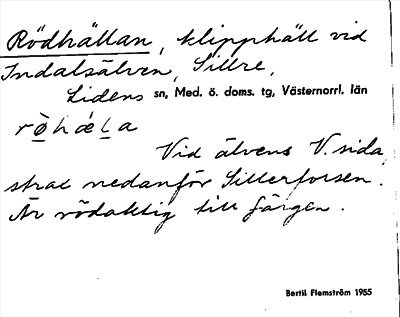 Rödhällan, klipphäll vid
Indalsälven, Sillre,
Lidens sn, Med. ö. doms. tg, Västernorrl. län
rø̀hǽla
Vid älvens V. sida,
strax nedanför Sillerforsen.
Är rödaktig till färgen.
Bertil Flemström 1955